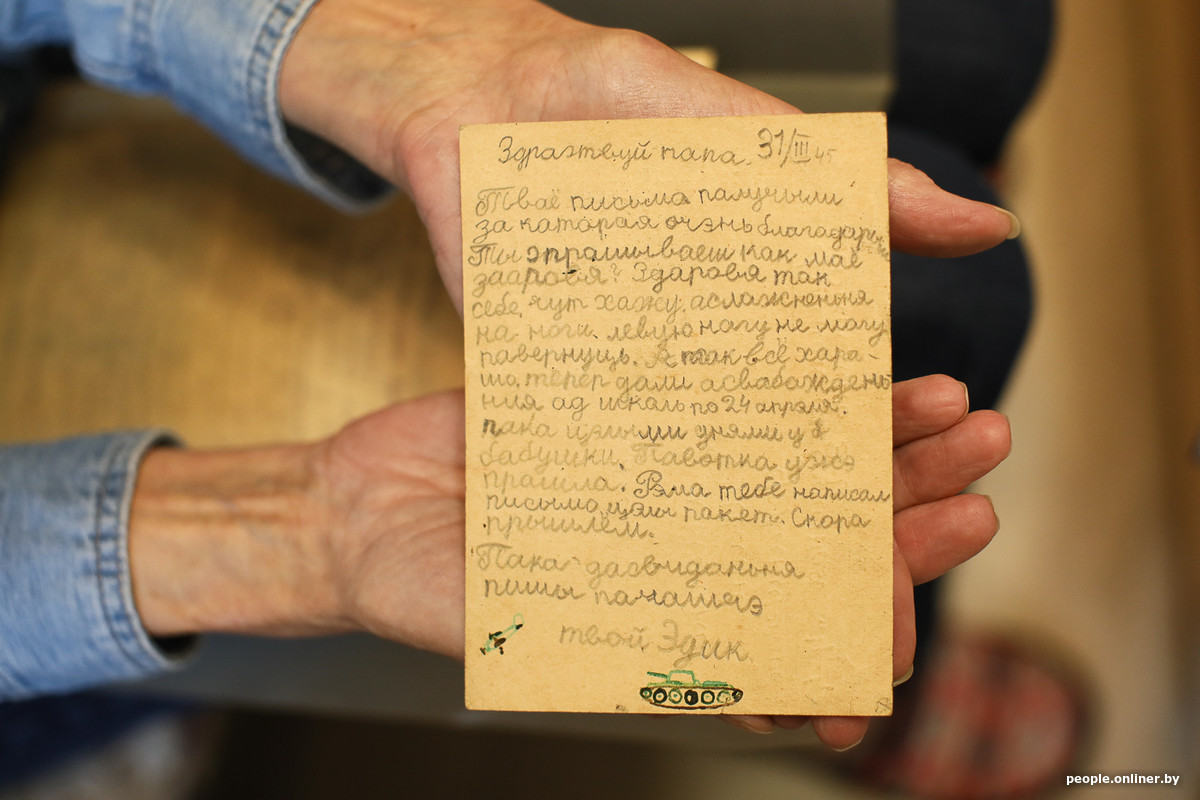 Здраэтвуй папа. 31/III 45
Тваё письма палучыли
за каторая очэнь благадарны
Ты спрашываеш как маё
здаровя? Здаровя так
себе, чут хажу, аслажненыня
на ноги. левую нагу не магу
павернуць. А так всё хара-
шо, тепер дали асвабаждень
ния ад школы по 24 апрэля.
пака цэлыми днями у
бабушки. Павотка ужэ
прашла. Рома тебе написал
письмо, цэлы пакет. Скора
прышлём.
Пака дасвиданьня
пишы пачашчэ
твой Эдик
people.onliner.by